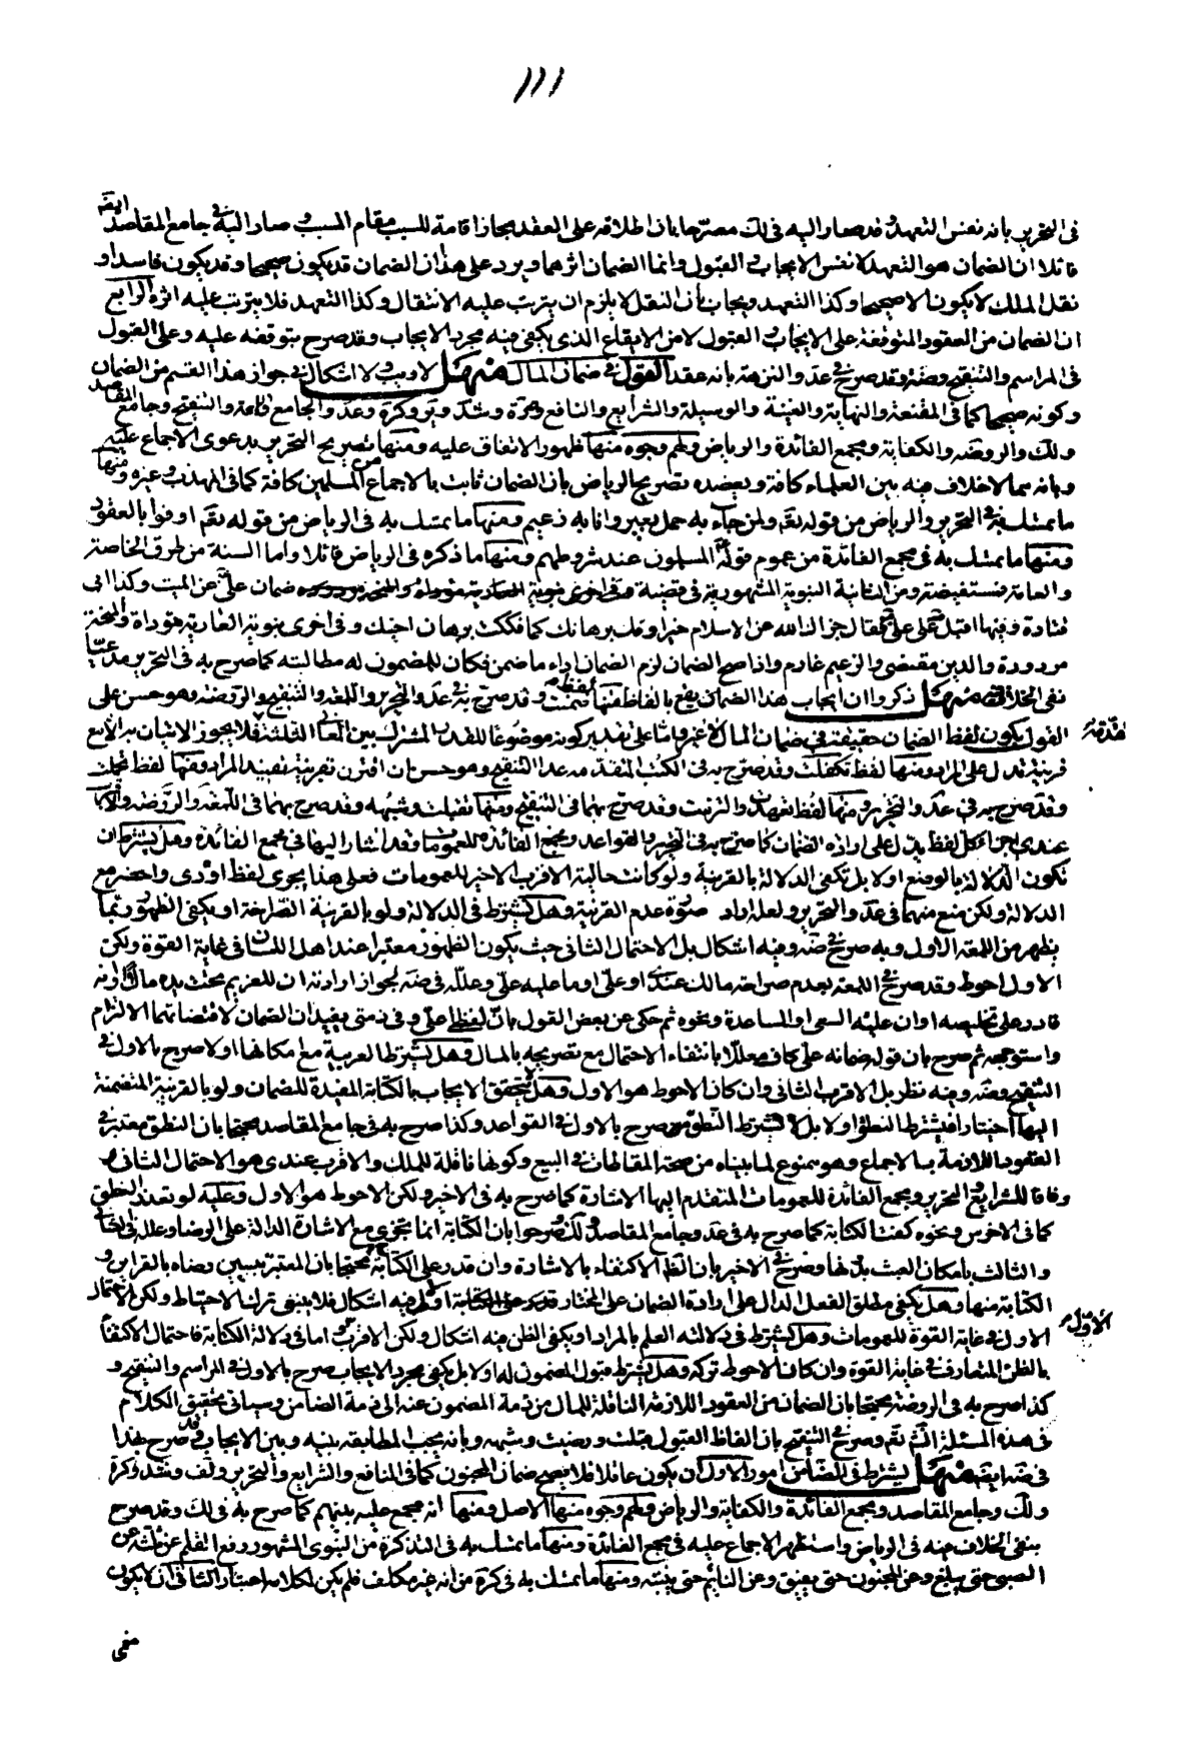 ١١١
في التحرير بانه نفس التعهد وقد صار اليه في لك مصرحا بان اطلاقه على العقد مجازا قامة للسبب مقام المسبب وصار اليه في جامع المقاصد ايضه
قائلا ان الضمان هو التعهد لا نفس الايجاب و القبول وانما الضمان اثرهما ويرد على هذا ان الضمان قد يكون صحيحا وقد يكون فاسدا و
نقل الملك لا يكون الا صحيحا وكذا التعهد ويجاب بان النقل لا يلزم ان يترتب عليه الانتقال وكذا التعهد فلا يترتب عليه اثره الرابع
ان الضمان من العقود المتوقفة على الايجاب و القبول لا من الايقاع الذي يكفي فيه مجرد الايجاب وقد صرح بتوقفه عليه وعلى القبول
في المراسم والتنقيح وضه وقد صرح في عد والنزهة بانه عقد القول في ضمان المال منهل لا ريب ولا اشكال في جواز هذا القسم من الضمان
وكونه صحيحا كما في المقنعة والنهاية والغنية والوسيلة والشرايع والنافع وشد وير وكرة وعد والجامع واللمعة والتنقيح وجامع المقاصد
ولك والروضه والكفاية ومجمع الفائدة والرياض ولهم وجوه منها ظهور الاتفاق عليه ومنها تصريح التحرير بدعوى الاجماع عليه
وبانه مما لا خلاف فيه بين العلماء كافة ويعضده تصريح الرياض بان الضمان ثابت بالاجماع من المسلمين كافة كما في المهذب وغيره ومنها
ما تمسك به في التحرير والرياض من قوله تعم ولمن جاء به حمل بعير وانا به زعيم ومنها ما تمسك به في الرياض من قوله تعم اوفوا بالعقود
ومنها ما تمسك به في مجمع الفائدة من عموم قوله المسلمون عند شروطهم ومنها ما ذكره في الرياض قائلا واما السنة من طرق الخاصة
والعامة فمستفيضة ومن الثانية النبوية المشهورية في قضية ضمان علي عن الميت وكذا ابي
قتادة وفيها اقبل على علي فقال جزاك الله عن الاسلام خيرا وفك برهانك كما فككت برهان اخيك وفي اخرى نبوية العارية مؤداة والمنحة
مردودة والدين مقضي والزعيم غارم واذا صح الضمان لزم الضمان اداء ما ضمن فكان للمضمون له مطالبته كما صرح به في التحرير مدعيا
نفي الخلاف فيه منهل ذكروا ان ايجاب هذا الضمان يقع بالفاظ منها لفظ ضمنت وقد صرح به في عد والتحرير واللمعة والتنقيح والروضه وهو حسن على
القول بكون لفظ الضمان حقيقة في ضمان المال لا غير واما على تقدير كونه موضوعا للقدر المشترك بين المعاني الثلثة فلا يجوز الاتيان به الا مع
قرينة تدل على المراد ومنها لفظ تكفلت وقد صرح به في الكتب المتقدمة عدا التنقيح وهو حسن ان اقترن بقرينة تفيد المراد ومنها لفظ تحملت
وقد صرح به في عد والتحرير ومنها لفظ تعهدت والتزمت وقد صرح بهما في التنقيح ومنها تقبلت وشبهه وقد صرح بهما في اللمعة والروضة
عندي اجزاء كل لفظ يدل على ارادة الضمان كما صرح به في التحرير والقواعد ومجمع الفائدة للعمومات وقد اشار اليها في مجمع الفائدة وهل يشترط ان
تكون الدلالة بالوضع اولا بل تكفي الدلالة بالقرينة ولو كانت حالية الاقرب الاخير للعمومات فعلى هذا يجزي لفظ اؤدي واحضر مع
الدلالة ولكن منع منهما في عد والتحرير ولعله اراد صورة عدم القرينة وهل يشترط في الدلالة ولو بالقرينة الصراحة او يكفي الظهور ربما
يظهر من اللمعة الاول وبه صرح في ضه وفيه اشكال بل الاحتمال الثاني حيث يكون الظهور معتبرا عند اهل اللسان في غاية القوة ولكن
الاول احوط وقد صرح في اللمعة بعدم صراحة مالك عندي او علي او ما عليه علي وعلله في ضه بجواز ارادته ان للغريم تحت يده مالا او انه
قادر على تخليصه او ان عليه السعي او المساعدة ونحوه ثم حكى عن بعض القول بان لفظي علي وفي ذمتي يفيدان الضمان لاقتضائهما الالتزام
واستوجه ثم صرح بان قوله ضمانه علي كاف معللا بانتفاء الاحتمال مع تصريحه بالمال وهل يشترط العربية مع امكانها اولا صرح بالاول في
التنقيح وضه وفيه نظر بل الاقرب الثاني وان كان الاحوط هو الاول وهل يتحقق الايجاب بالكتابة المفيدة للضمان ولو بالقرينة المنضمة
اليها اختيارا فيشترط النطق اولا بل لا يشترط النطق صرح بالاول في القواعد وكذا صرح به في جامع المقاصد محتجا بان النطق معتبر في
العقود اللازمة بالاجماع وهو ممنوع لما بيناه من صحة المعاطات في البيع وكونها ناقلة للملك والاقرب عندي هو الاحتمال الثاني
وفاقا للشرايع و التحرير ومجمع الفائدة للعمومات المتقدم اليها الاشارة كما صرح به في الاخير ولكن الاحوط هو الاول وعليه لو تعذر النطق
كما في الاخرس ونحوه كفت الكتابة كما صرح به في عد وجامع المقاصد ولكن صرحوا بان الكتابة انما تجزي مع الاشارة الدالة على الرضا وعلله في الثاني
والثالث بامكان العبث بدونها وصرح في الاخير بان الظ الاكتفاء بالاشارة وان قدر على الكتابة محتجا بان المعتبر تبيين رضاه بالقراين و
الكتابة منها وهل يكفي مطلق الفعل الدال على ارادة الضمان على المختار اولا فيه اشكال فلا ينبغي ترك الاحتياط ولكن الاحتمال
الاول في غاية القوة للعمومات وهل يشترط في دلالته العلم بالمراد او يكفي الظن فيه اشكال ولكن الاقرب اما في دلالة الكتابة فاحتمال الاكتفاء
بالظن المتعارف في غاية القوة وان كان الاحوط تركه وهل يشترط قبول المضمون له اولا بل يكفي مجرد الايجاب صرح بالاول في المراسم والتنقيح و
كذا صرح به في الروضة محتجا بان الضمان من العقود اللازمة الناقلة للمال من ذمة المضمون عنه الى ذمة الضامن وسياتي تحقيق الكلام
في هذه المسئلة انش تعم وصرح في التنقيح بان الفاظ القبول قبلت ورضيت وشبهه وبانه يجب المطابقة بينه وبين الايجاب وقد صرح بهذا
في ضه ايضه منهل يشترط في الضامن امور الاول ان يكون عاقلا فلا يصح ضمان المجنون كما في النافع والشرايع والتحرير ولف وعد وكرة
ولك وجامع المقاصد ومجمع الفائدة والكفاية والرياض ولهم وجوه منها الاصل ومنها انه مجمع عليه بينهم كما صرح به في لك وقد صرح
بنفي الخلاف فيه في الرياض واستظهر الاجماع عليه في مجمع الفائدة ومنها ما تمسك به في التذكرة من النبوي المشهور رفع القلم عن ثلثة عن
الصبي حتى يبلغ وعن المجنون حتى يفيق وعن النائم حتى ينتبه ومنها ما تمسك به في كرة من انه غير مكلف فلم يكن لكلامه اعتبار الثاني ان لا يكون